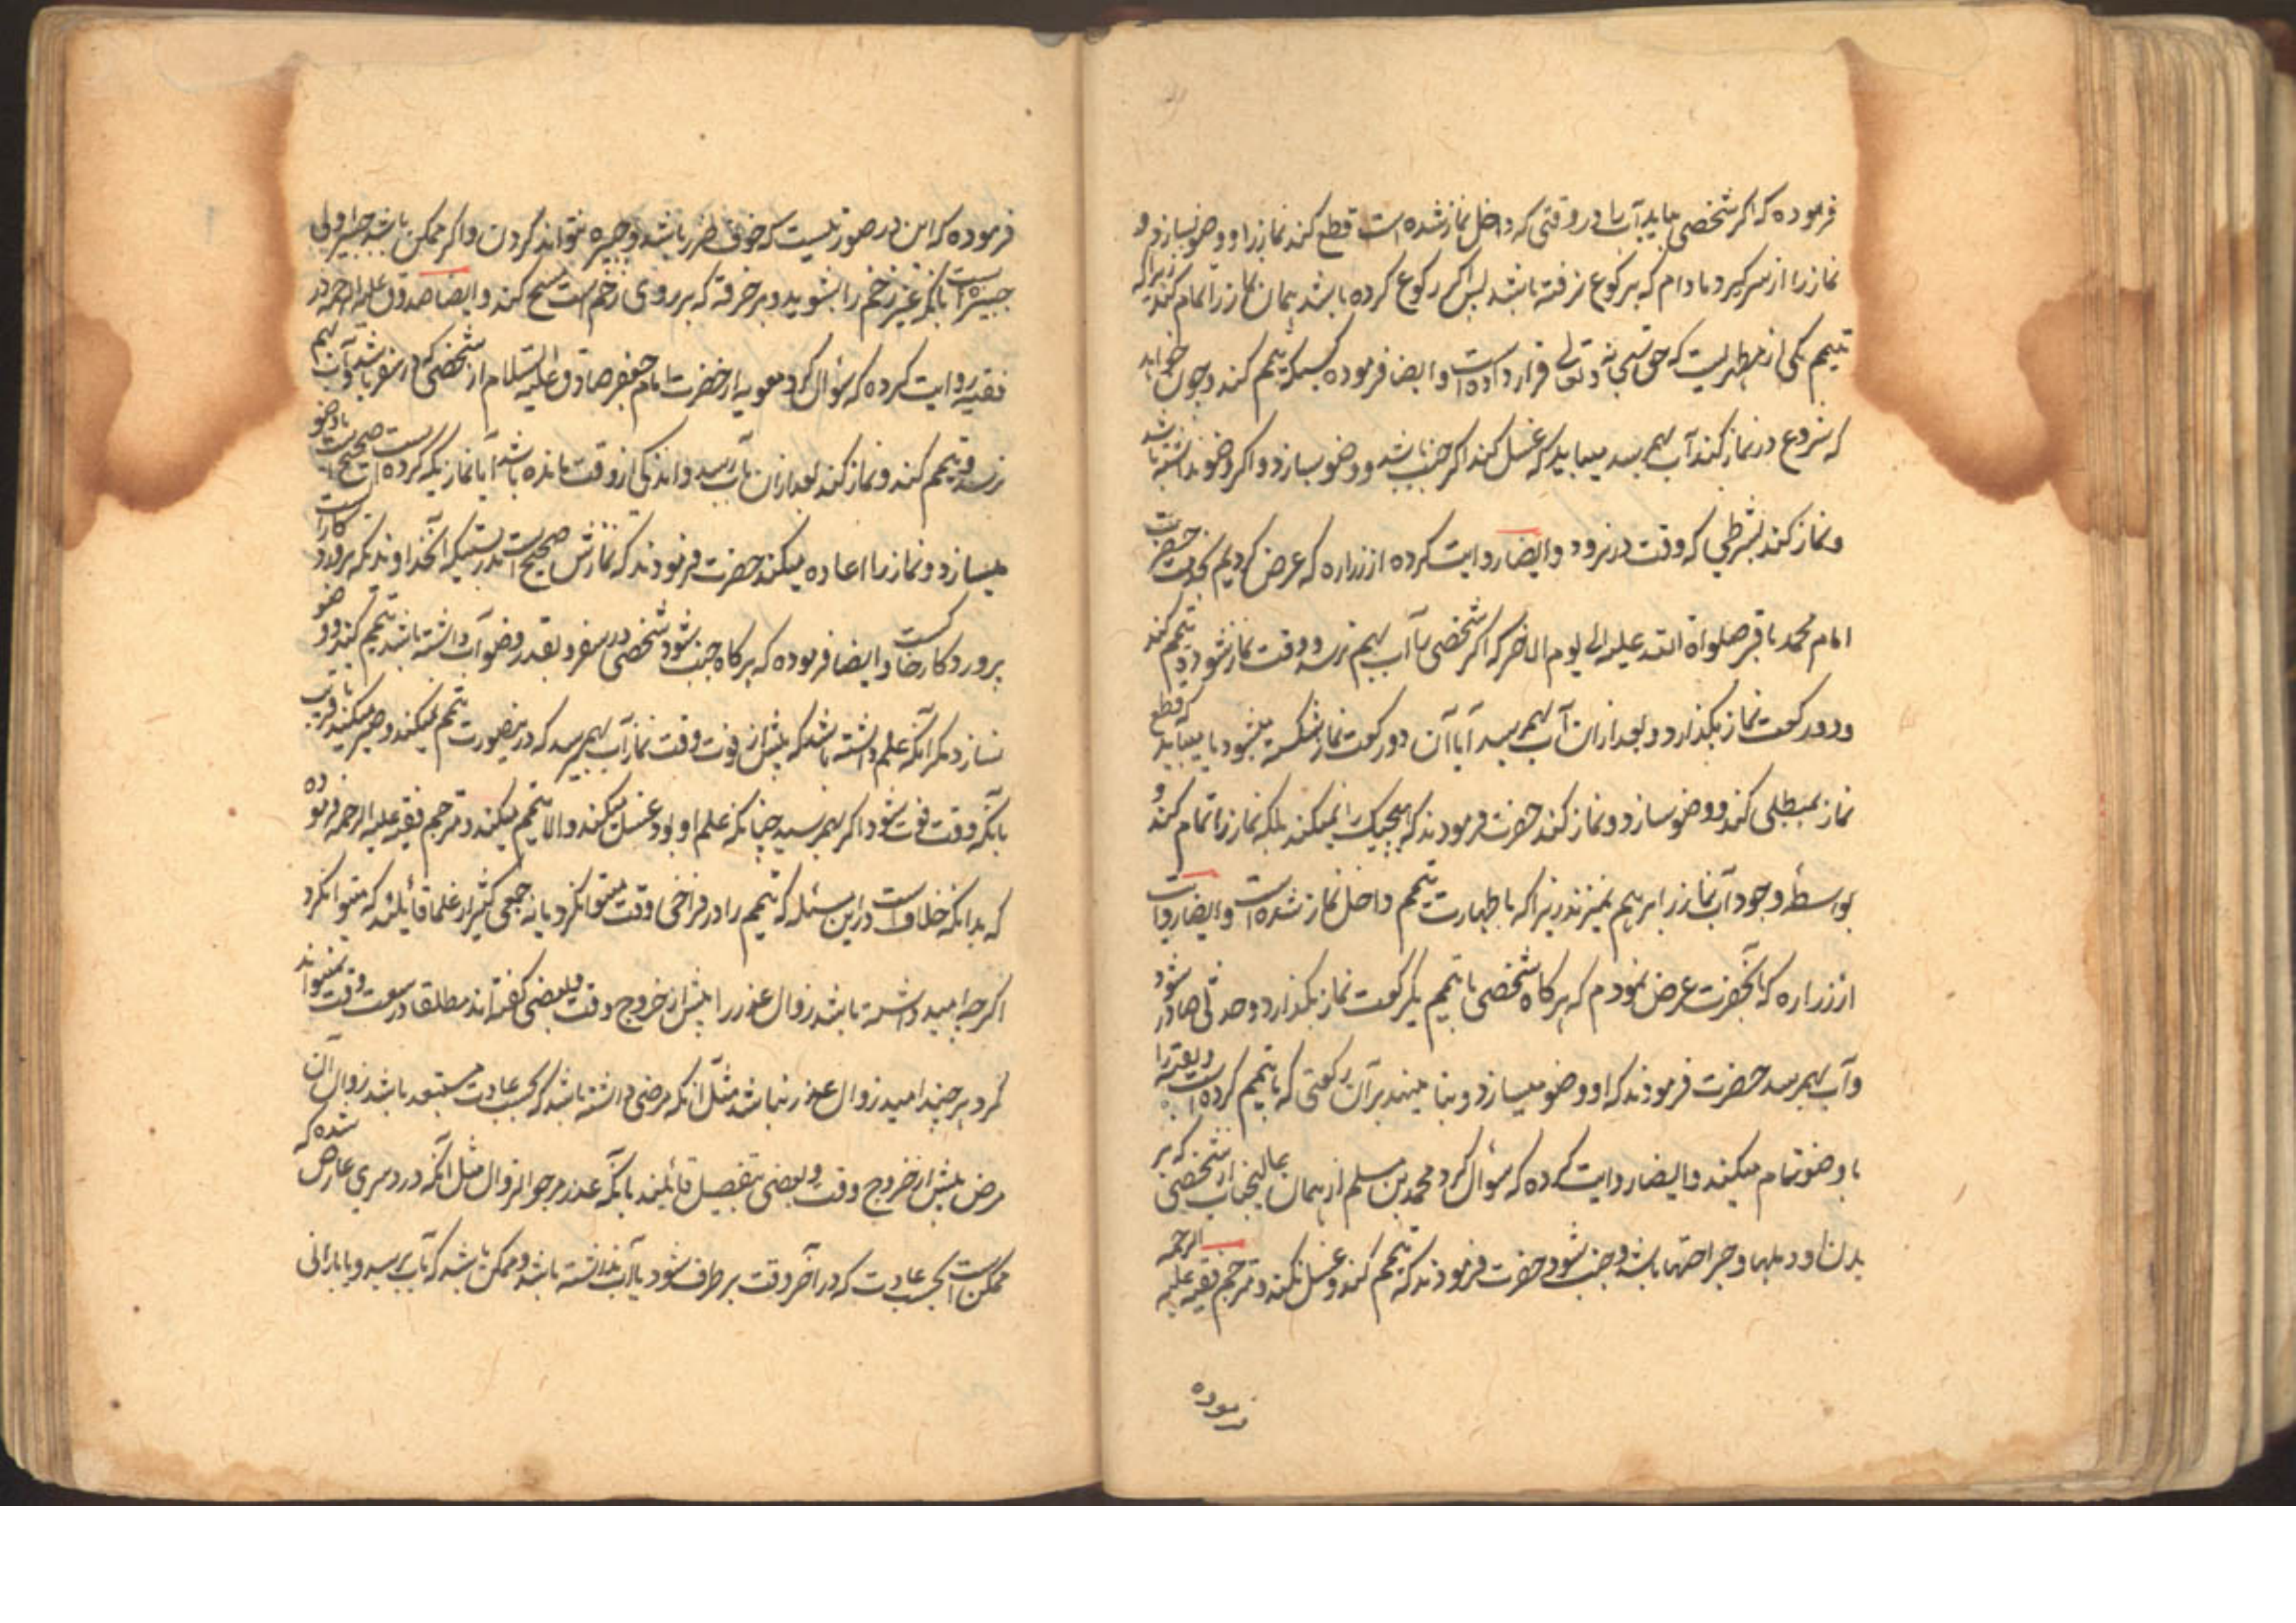 فرموده که اگر شخصی بیابد آب را در وقتی که داخل نماز شده است قطع کند نماز را و وضو بسازد و
نماز را از سر گیرد مادام که برکوع نرفته باشد پس اگر رکوع کرده باشد همان نماز را تمام کند زیرا که
تیمم یکی از مطهر یست که حق سبحانه و تعالی قرار داده است و ایضا فرموده کسیکه تیمم کند و چون خواهد
که شروع در نماز کند آب بهم رسد میباید که غسل کند اگر جنب باشد و وضو بسازد و اگر وضو نداشته باشد
و نماز کند بشرطی که وقت در نرود و ایضا روایت کرده از زراره که عرض کردیم بخدمت حضرت
امام محمد باقر صلواة الله علیه الی یوم الاخر که اگر شخصی را آب بهم نرسد و وقت نماز شود و تیمم کند
و دو رکعت نماز بگذارد و بعد از ان آب بهم رسد آیا آن دو رکعت نماز شکسته میشود یا میباید که قطع
نماز کند و وضو سازد و نماز کند حضرت فرمودند که هیچیک را نمیکند بلکه نماز را تمام کند و
بواسطه وجود آب نماز را برهم نمیزند زیرا که با طهارت تیمم داخل نماز شده است و ایضا روایت
از زراره که بآنحضرت عرض نمودم که هرگاه شخصی با تیمم یکرکعت نماز بگذارد و حدثی صادر شود
و آب بهم رسد حضرت فرمودند که او وضو میسازد و بنا مینهد بر آن رکعتی که با تیمم کرده است و بقیه را
با وضو تمام میکند و ایضا روایت کرده که سؤال کرد محمد بن مسلم از همان عالیجناب از شخصی که بر
بدن او دملها و جراحتها باشد و جنب شود حضرت فرمودند که تیمم کند و غسل نکند و مترجم فقیه علیه الرحمه
فرموده
فرموده که این در صورتیست که خوف ضرر باشد و جبیره نتواند کردن و اگر ممکن باشد جبیره اولی
جبیره است بآنکه غیر زخم را بشوید و بر خرقه که بر روی زخم است مسح کند و ایضا صدوق علیه الرحمه در
فقیه روایت کرده که سؤال کرد معویه از حضرت امام جعفر صادق علیه السلام از شخصی که در سفر باشد و آب بهم
نرسد و تیمم کند و نماز کند بعد از ان بآب رسد و اندکی از وقت مانده باشد آیا نماز یکه کرده است صحیح است یا وضو
میسازد و نماز را اعاده میکند حضرت فرمودند که نمازش صحیح است بدرستیکه آنخداوندیکه پرورد کار آبست
پروردکار خاکست و ایضا فرموده که هرگاه جنب شود شخصی در سفر و بقدر وضو آب داشته باشد تیمم کند و وضو
نسازد مگر آنکه علم داشته باشد که پیش از فوت وقت نماز آب بهم میرسد که در ینصورت تیمم نمیکند و صبر میکند تا قریب
بآنکه وقت فوت شود اگر بهم رسید چنانکه علم او بود غسل میکند والا تیمم میکند و مترجم فقیه علیه الرحمه فرموده
که بدانکه خلاف است در این مسئله که تیمم را در فراخی وقت میتوان کرد یا نه جمعی کثیر از علما قائلند که میتوان کرد
اگرچه امید داشته باشد زوال عذر را پیش از خروج وقت و بعضی گفته اند مطلقا در سعت وقت نمیتواند
کرد هر چند امید زوال عذر نباشد مثل آنکه مرضی داشته باشد که بحسب عادت مستبعد باشد زوال آن
مرض پیش از خروج وقت و بعضی بتفصیل قائلند بآنکه عذر مرجو الزوال مثل آنکه درد سری عارض شده که
ممکن است بحسب عادت که در آخر وقت بر طرف شود یا آب نداشته باشد و ممکن باشد که بآب برسد و یا بارانی